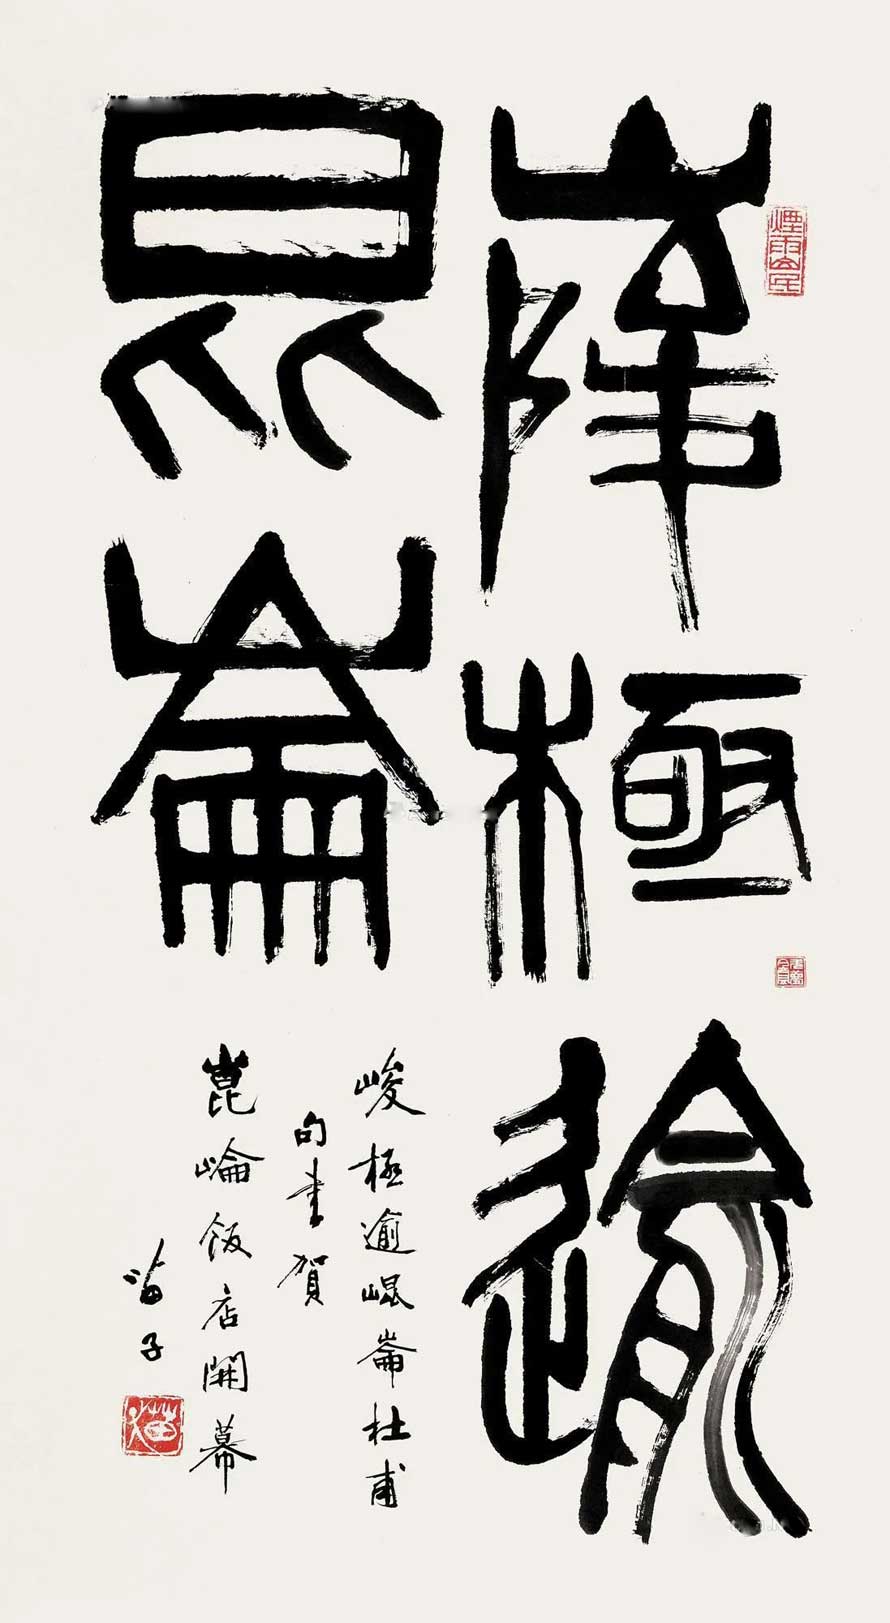 峻極逾
昆崙
峻極逾崐崙杜甫
句書賀
崑崘飯店開幕
苗子